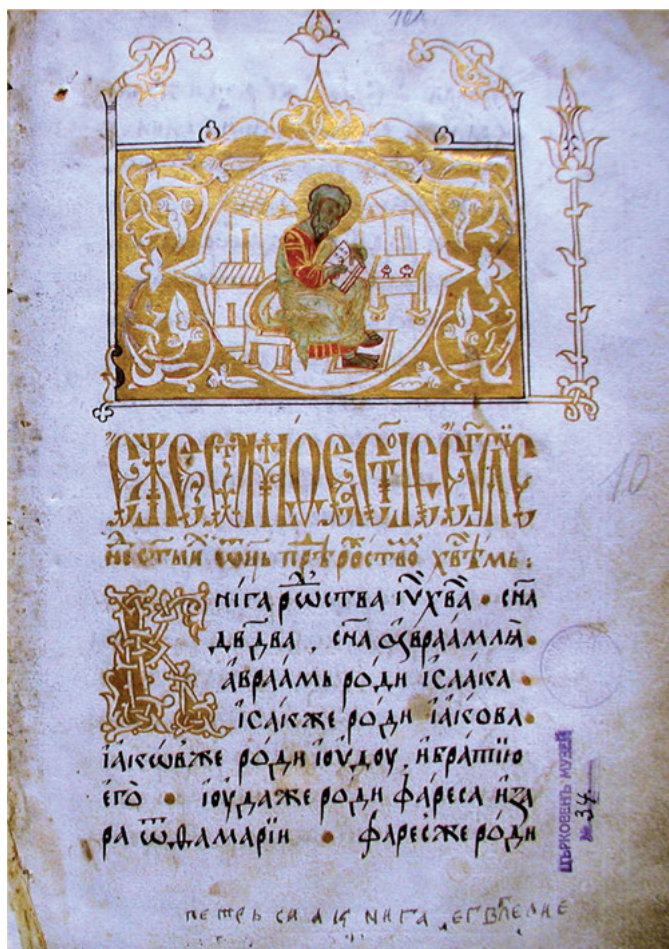 104
ЕЖЕ Ѿ МАѲЕА СТ҃ОЕ ЕѴ҃ЛЇЕ
10
нїга рѡⷭ҇ства і҆ѵ҃ хв҃а • сн҃а
дв҃два , сн҃а а҆враа́млѧ •
а҆враа́мь роди і҆саа́ка •
і҆са́к же ро́ди і҆а́кова •
і҆а́кѡв же ро́ди і҆оу́доу , и҆ бра́тїю
е҆го̀ • і҆оу́да же роди фа́реса и҆ за
ра ѿ ѳамарїи • фаре́с же ро́ди
ЦЪРКОВЕНЪ МУЗЕЙ
№ 34
петрь си а книга